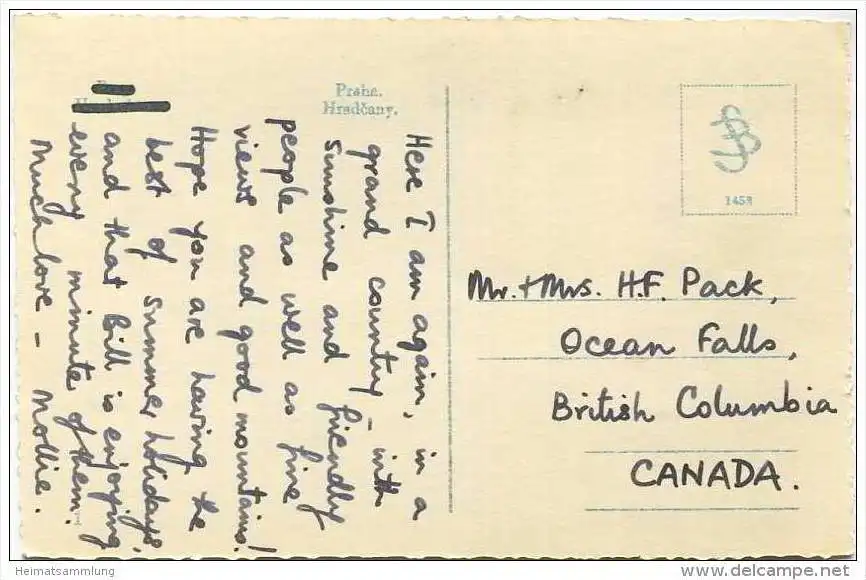 Praha.
Hradčany.
Here I am again, in a
grand country - with
sunshine and friendly
people as well as fine
views and good mountains!
Hope you are having the
best of summer holidays,
and that Bill is enjoying
every minute of them.
Much love - Mollie.
1453
Mr. + Mrs. H.F. Pack,
Ocean Falls,
British Columbia
CANADA.
Heimatsammlung
www.delcampe.net